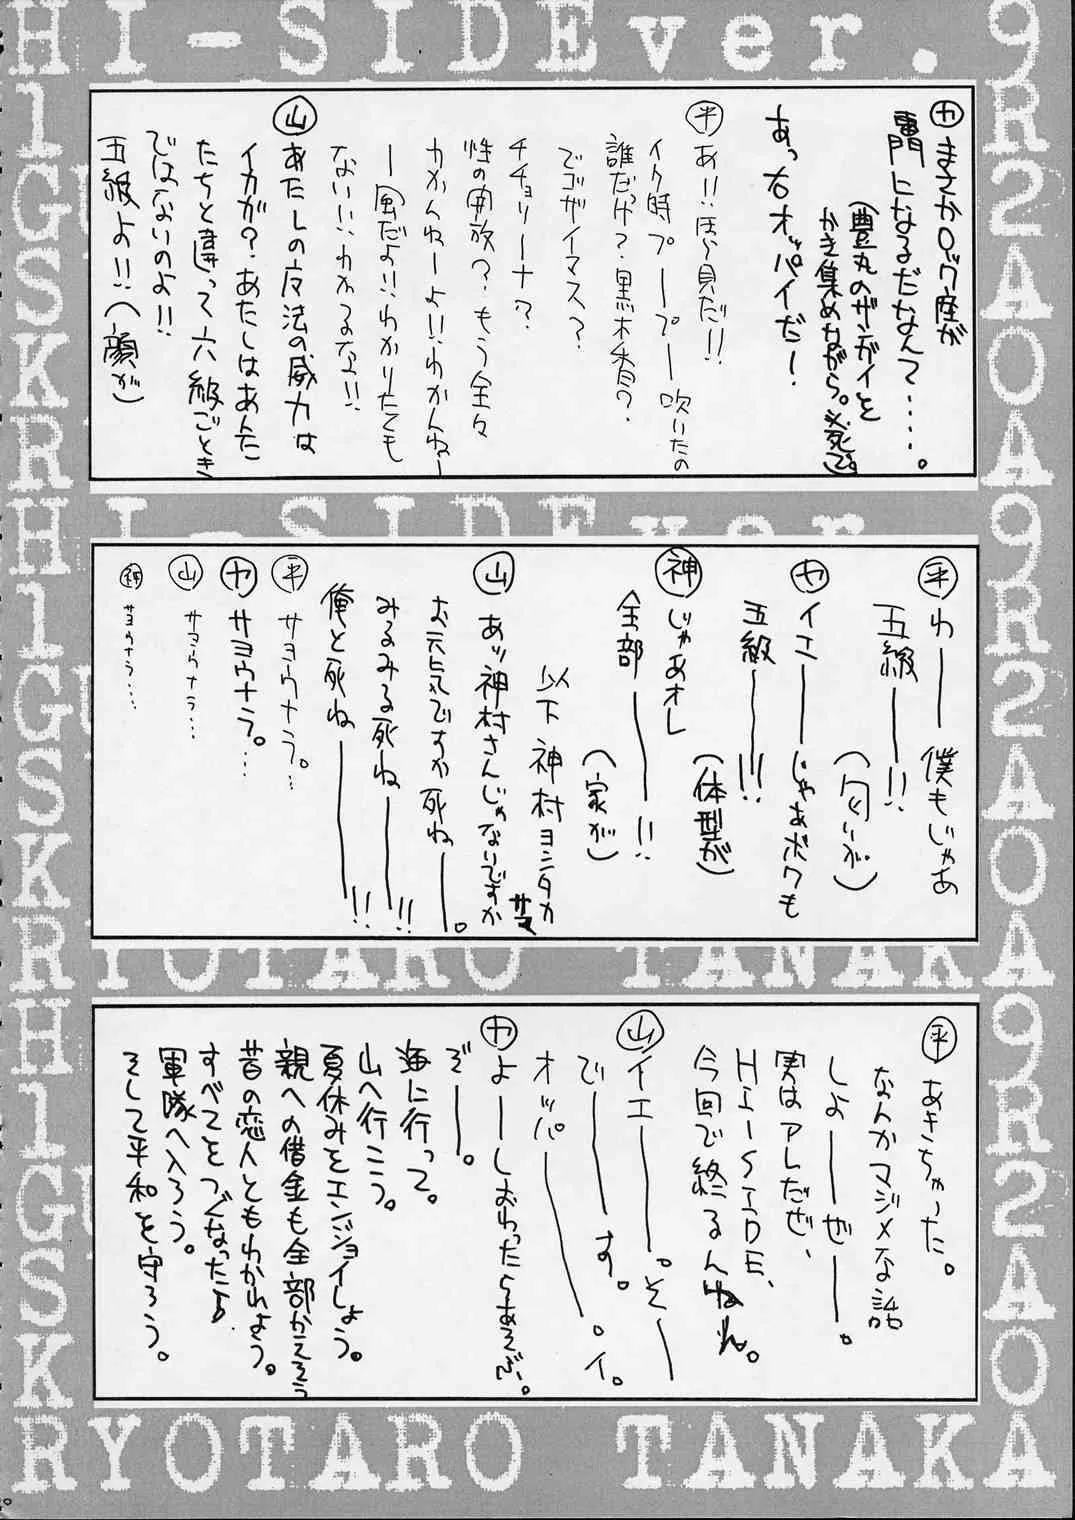 HI-SIDEver.9
カ まさかロック座が
専門になるだなんて・・・・・。
(豊丸のザンガイを
かき集めながら。必死で。)
あっ右オッパイだー!
平 あ!!ほら貝だ!!
イク時プープー吹いたの
誰だっけ?黒木香?
でゴザイマス?
チチョリーナ?
性の開放?もう全々
わかんねーよ!!わかんねー
ー風だよ!!わかりたくも
ない!!わかるな!!
山 あたしの 法の威力は
イカが?あたしはあんた
たちと違って六級ごとき
ではないのよ!!
五級よ!!(顔が)
HI-SIDEver.
平 わーー僕もじゃあ
五級ーー!!
(匂いが)
カ イエーーじゃあボクも
五級ーー!!!
(体型が)
神 じゃあオレ
全部ーー!!
(家が)
以下神村ヨシタカサマ
山 あッ神村さんじゃないですか
お元気ですか死ねーー。
みるみる死ねーー!!
俺と死ねーー!!
平 サヨウナラ。…
カ サヨウナラ。…
山 サヨウナラ…
神 サヨウナラ…
RYOTARO TANAKA
平 あきちゃった。
なんかマジメな話
しよーーぜーー。
実はアレだぜ、
HI-SIDE、
今回で終るんだね。
山 イエーー。そーー
でーーす。
オッパーー。イ。
カ よーーしおわったらあそぶ。
ぞーー。
海に行って。
山へ行こう。
夏休みをエンジョイしよう。
親への借金も全部かえそう
昔の恋人ともわかれよう。
すべてをつぐなったら
軍隊へ入ろう。
そして平和を守ろう。
RYOTARO TANAKA